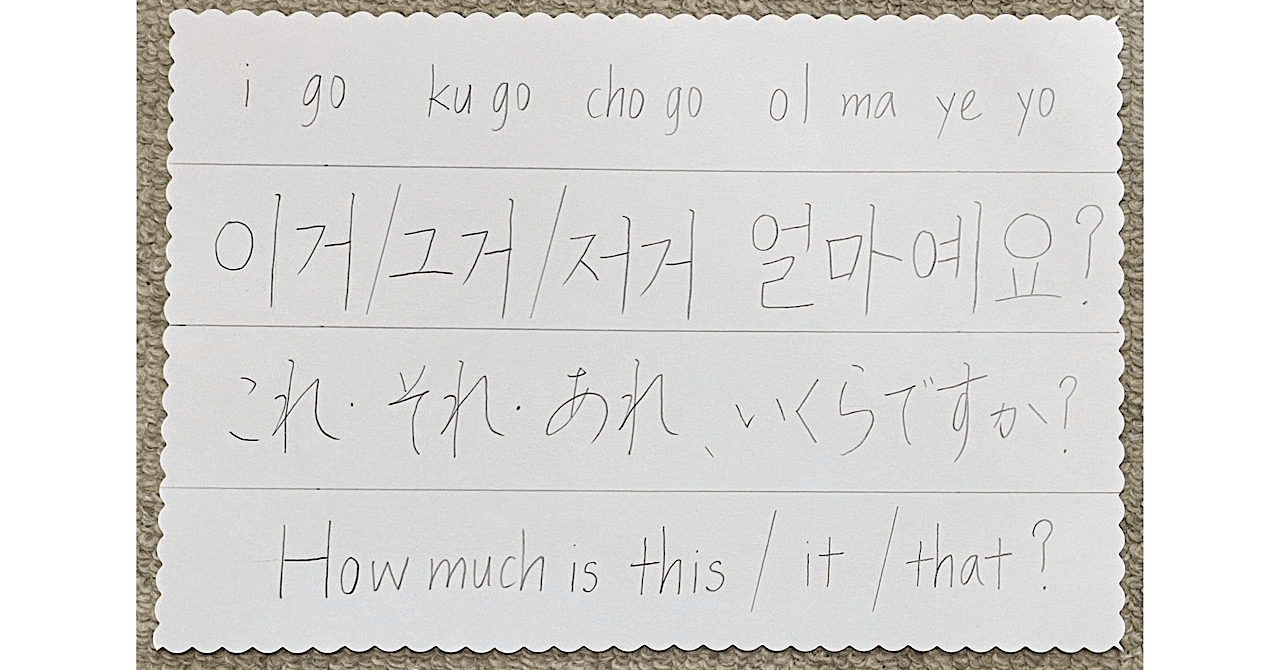 i go ku go cho go ol ma ye yo
이거/그거/저거 얼마예요?
これ・それ・あれ、いくらですか?
How much is this / it / that?